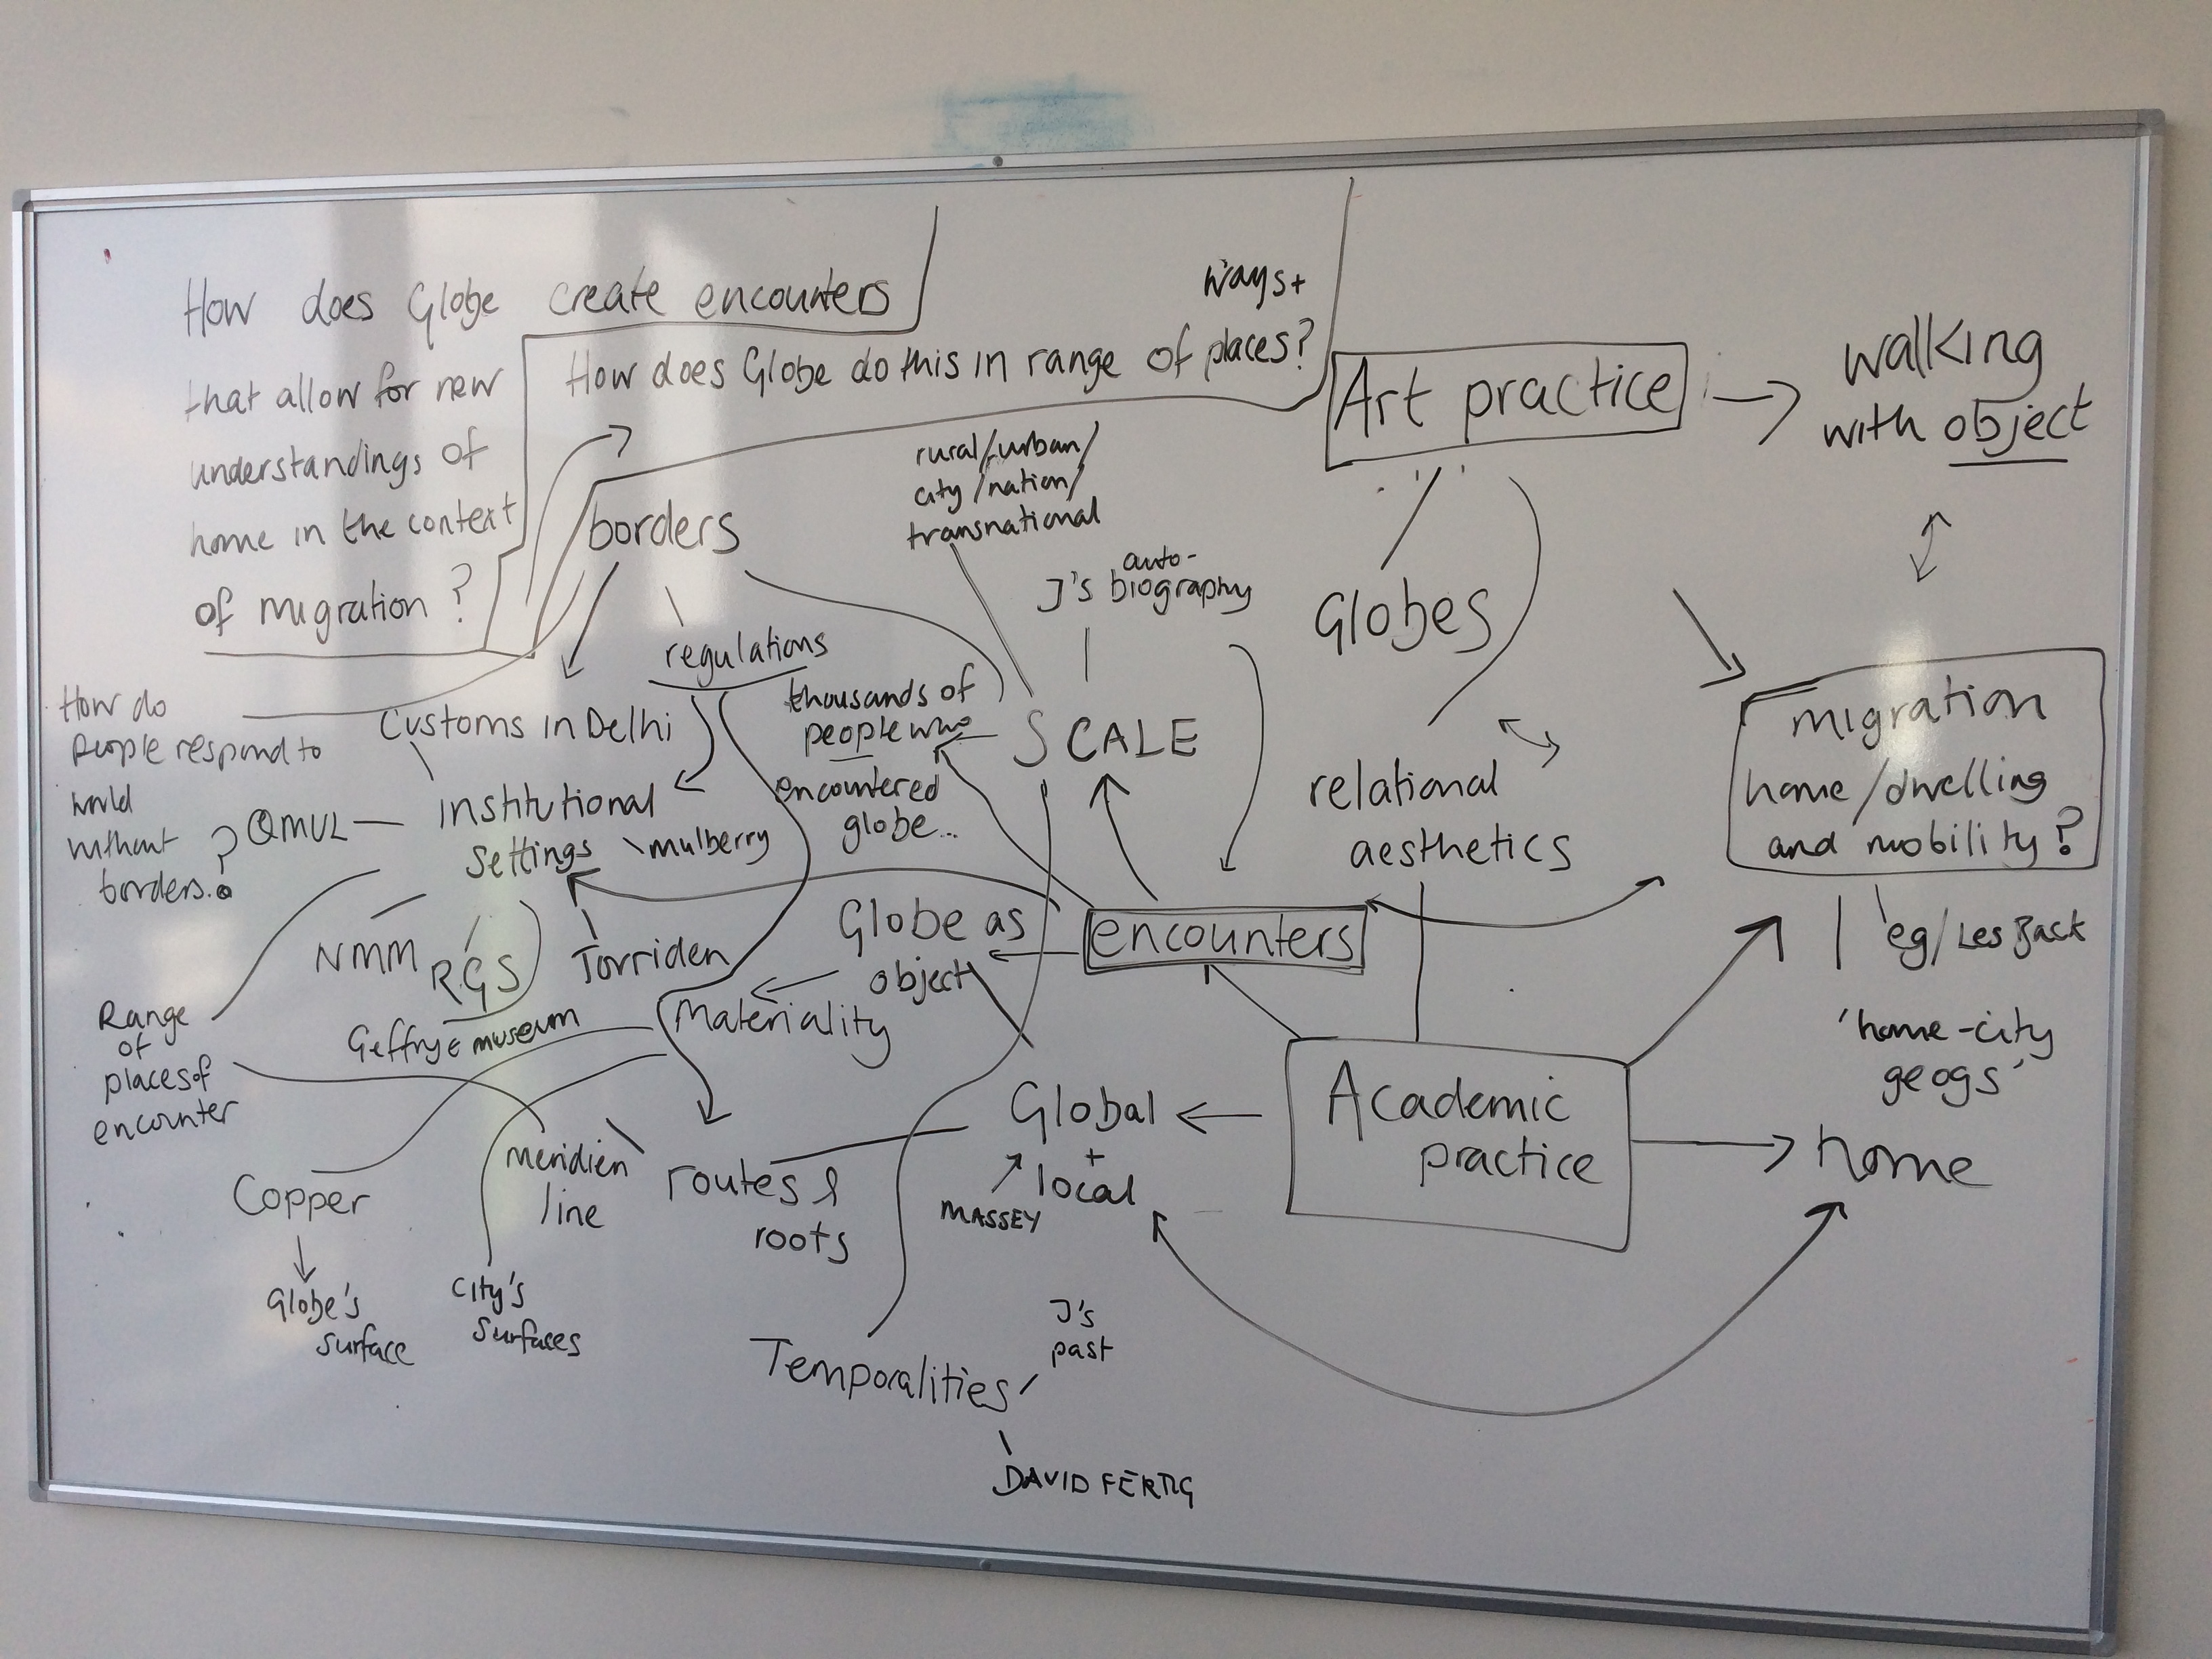 How does Globe create encounters
that allow for new
understandings of
home in the context
of migration?
ways+
How does Globe do this in range of places?
Art practice
walking
with object
rural/urban/
city/nation/
transnational
borders
auto-
J's biography
Globes
regulations
How do
people respond to
world
without
borders.?
Customs in Delhi
thousands of
people who
encountered
globe...
SCALE
migration
home/dwelling
and mobility?
relational
aesthetics
QMUL
institutional
settings
mulberry
NMM
RGS
Torriden
Geffrye museum
Globe as
object
encounters
eg/Les Back
Materiality
'home-city
geogs'
Range
of
places of
encounter
Global
+
local
MASSEY
Academic
practice
home
Copper
Meridien
line
routes &
roots
Globe's
surface
City's
surfaces
J's
past
Temporalities
DAVID FERTIG